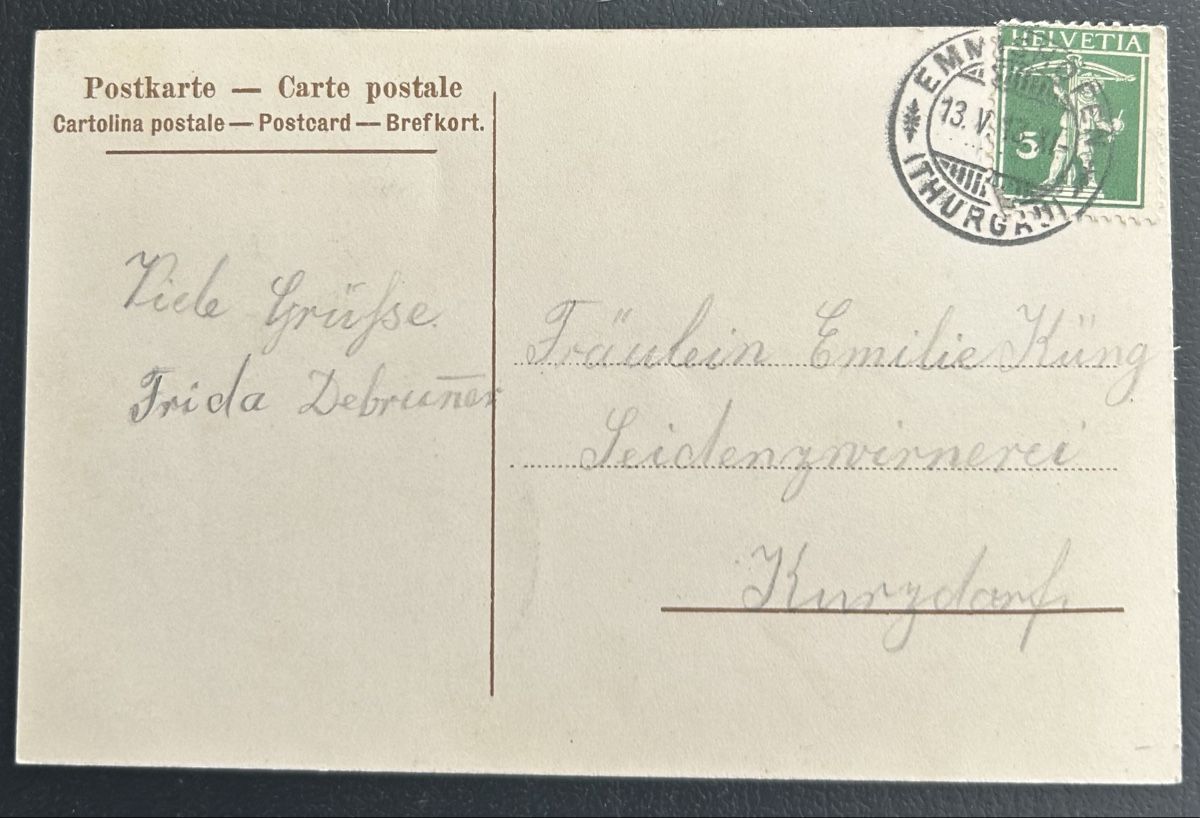 Postkarte — Carte postale
Cartolina postale — Postcard — Brefkort.
HELVETIA
5
13. V.
(THURGAU)
Viele Grüsse.
Frida Debruñer
Fräulein Emilie Küng
Seidenzwirnerei
Kurzdorf.